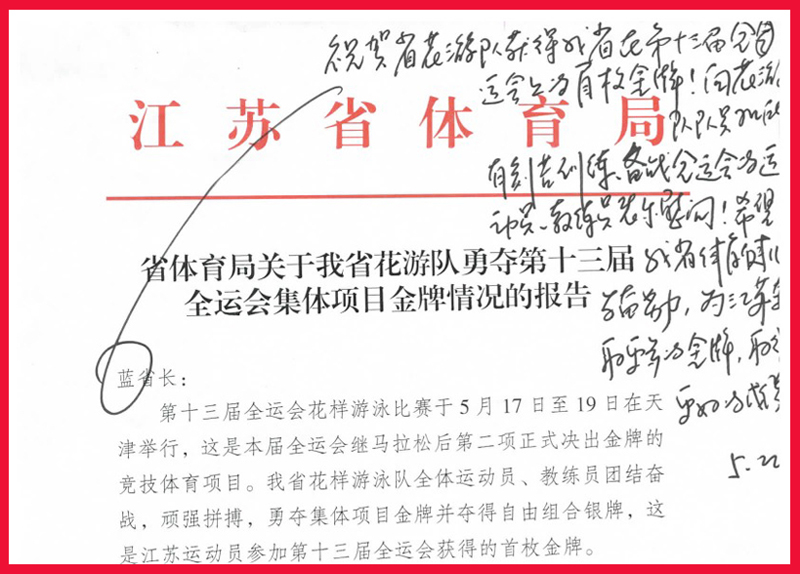 祝贺省花游队获得我省在第十三届全国
运会上的首枚金牌！向花游
队队员和所
有刻苦训练、备战全运会的运
动员、教练员表示慰问！希望
我省体育健儿
为江苏
取更多的金牌，取
更好的成绩
5.22
江苏省体育局
省体育局关于我省花游队勇夺第十三届
全运会集体项目金牌情况的报告
蓝省长：
第十三届全运会花样游泳比赛于5月17日至19日在天
津举行，这是本届全运会继马拉松后第二项正式决出金牌的
竞技体育项目。我省花样游泳队全体运动员、教练员团结奋
战，顽强拼搏，勇夺集体项目金牌并夺得自由组合银牌，这
是江苏运动员参加第十三届全运会获得的首枚金牌。